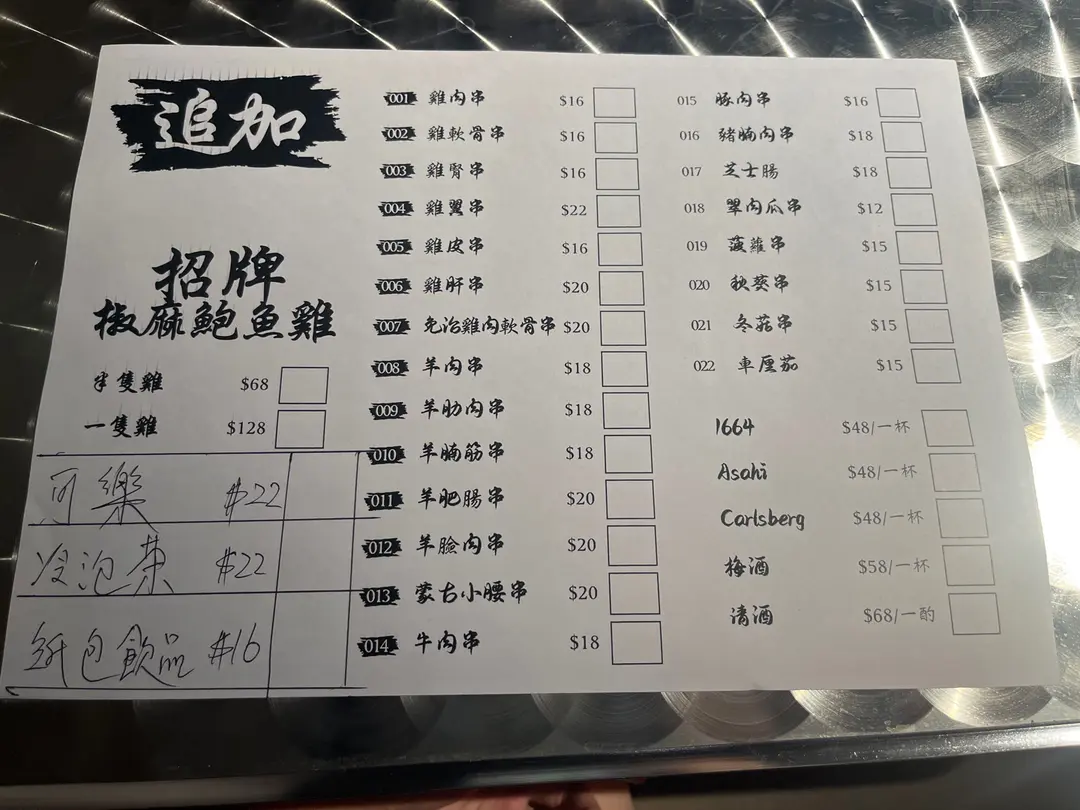 追加
招牌
椒麻鮑魚雞
半隻雞 $68
一隻雞 $128
可樂 $22
冷泡茶 $22
紙包飲品 $16
001 雞肉串 $16
002 雞軟骨串 $16
003 雞腎串 $16
004 雞翼串 $22
005 雞皮串 $16
006 雞肝串 $20
007 免治雞肉軟骨串 $20
008 羊肉串 $18
009 羊肋肉串 $18
010 羊腩筋串 $18
011 羊肥腸串 $20
012 羊臉肉串 $20
013 蒙古小腰串 $20
014 牛肉串 $18
015 豚肉串 $16
016 豬腩肉串 $18
017 芝士腸 $18
018 翠肉瓜串 $12
019 菠蘿串 $15
020 秋葵串 $15
021 冬菇串 $15
022 車厘茄 $15
1664 $48/一杯
Asahi $48/一杯
Carlsberg $48/一杯
梅酒 $58/一杯
清酒 $68/一酌